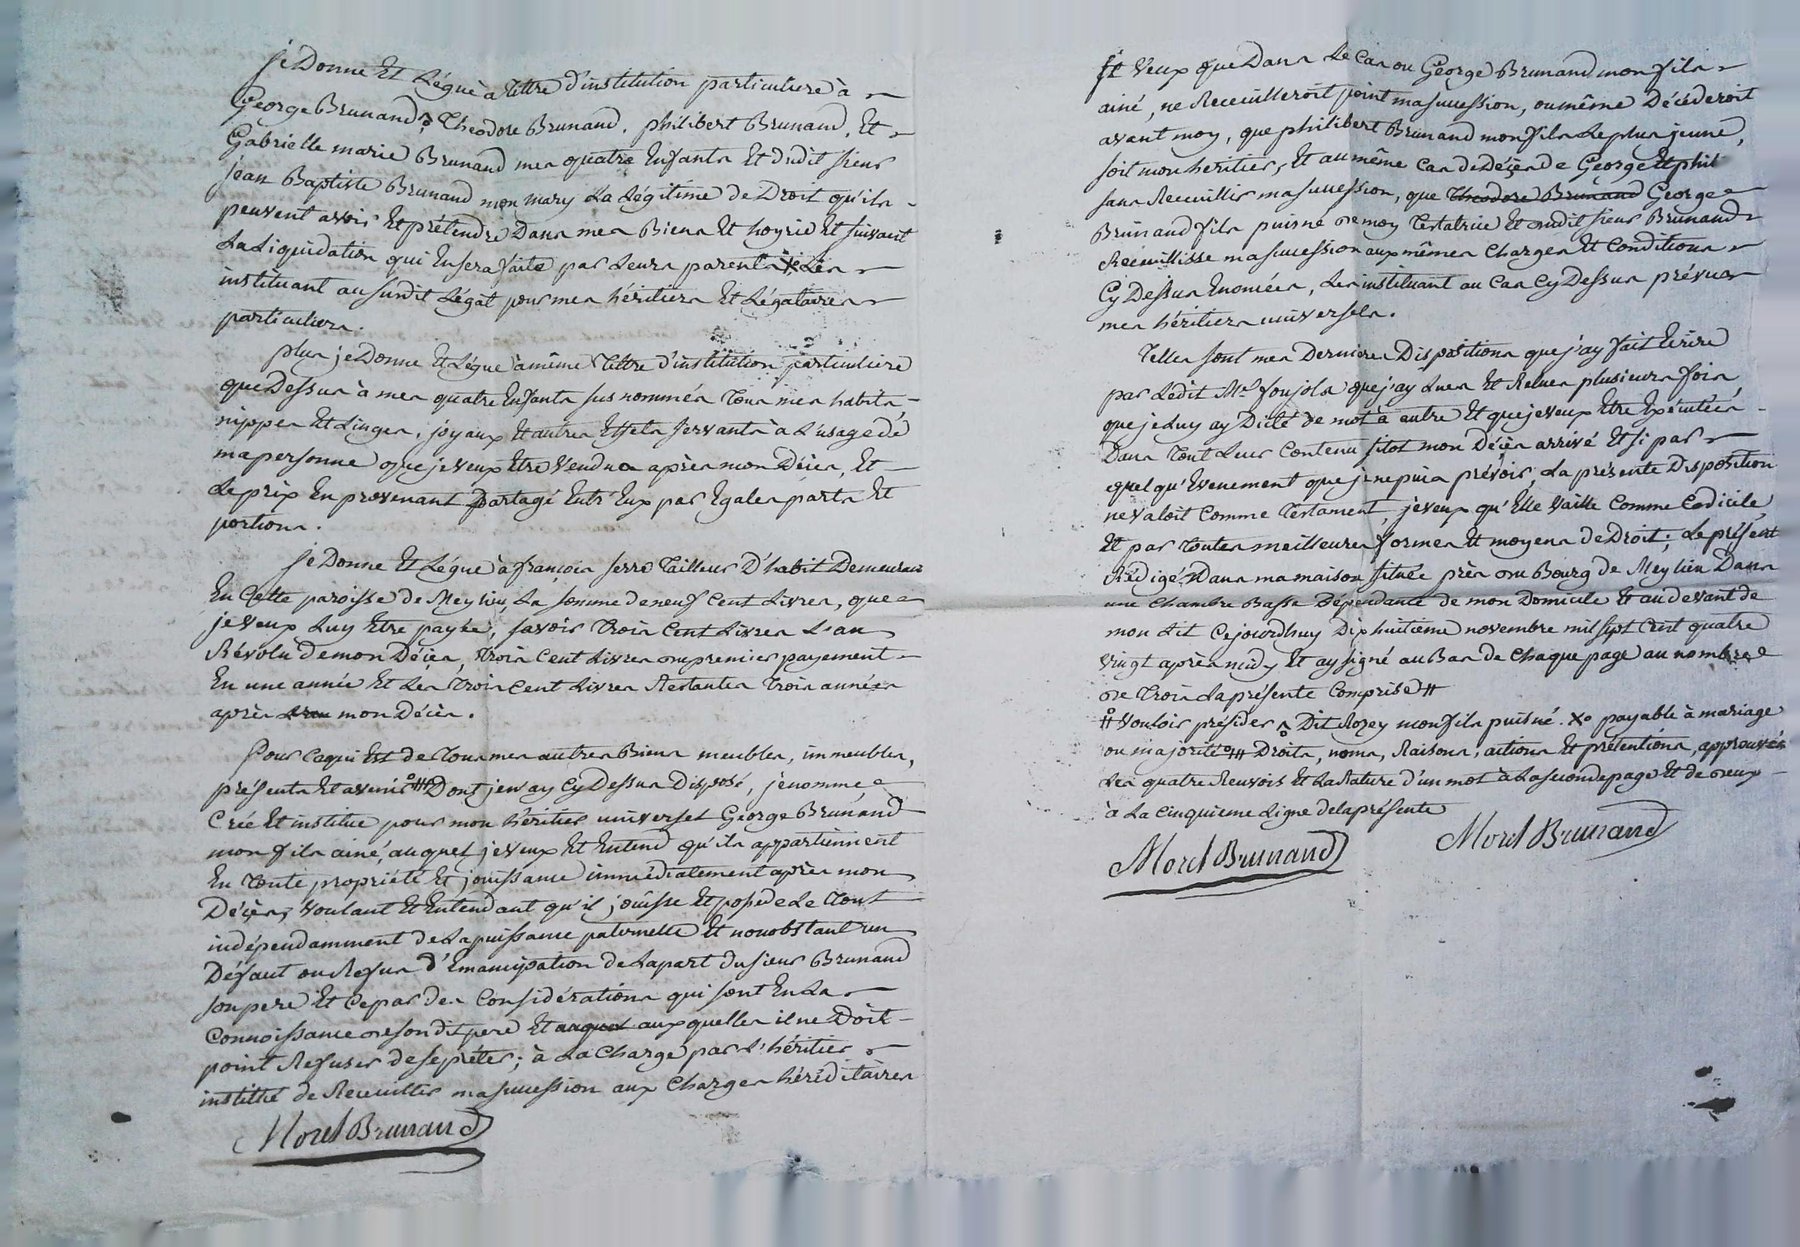 je Donne Et Légue à tittre d'institution particuliere à
George Brunand, Theodore Brunand, philibert Brunand, Et
Gabrielle marie Brunand mes quatre Enfants Et dudit sieur
jean Baptiste Brunand mon mary La Légitime de Droit qu'ils
peuvent avoir Et prétendre Dans mes Biens Et hoyrie Et suivant
La Liquidation qui En sera faite par Leurs parents Les
instituant au susdit Légat pour mes héritiers Et Légataires
particuliers.
plus je Donne Et Légue à même tittre d'institution particuliere
que Dessus à mes quatre Enfants sus nommés Tous mes habits
nippes Et Linges, joyaux Et autres Effets servants à L'usage dé
ma personne que je veux Etre Vendus après mon Décès, Et
Le prix En provenant partagé Entr'Eux par Egales parts Et
portions.
je Donne Et Légue à françois serre Tailleur D'habit Demeurant
En Cette paroisse de Meylieu La somme de neuf Cent Livres, que
je veux Luy Etre payée, savoir Trois Cent Livres L'an
Révolu de mon Décès, trois Cent Livres du premier payement
En une année Et Les Trois Cent Livres Restantes Trois années
après L'an mon Décès.
Pour Ce qui Est de Tous mes autres Biens meubles, immeubles,
présents Et avenir o## Dont je n'ay Cy Dessus Disposé, je nomme
Créé Et institue pour mon héritier universel George Brunand
mon fils ainé, auquel je veux Et Entend qu'ils appartiennent
En toute propriété Et jouissance immédiatement après mon
Décès, Voulant Et Entendant qu'il jouisse Et possede Le Tout
indépendamment de La puissance paternelle Et nonobstant un
Défaut ou Refus d'Emancipation de La part du sieur Brunand
son pere Et Ce par des Considérations qui sont En La
Connoissance de son dit pere Et auquel aux quelles il ne Doit
point Refuser de se préter; à La Charge par L'héritier
institué de Recueillir ma succession aux Charges héréditaires
Morel Brunand
Et Veux que Dans Le Cas ou George Brunand mon fils
ainé, ne Receuilleroit point ma succession, ou même Décéderoit
avant moy, que philibert Brunand mon fils Le plus jeune,
soit mon heritier, Et au même Cas de Décès de George Et phil
sans Receuillir ma succession, que Theodore Brunand George
Brunand fils puisné de moy Testatrice Et dudit sieur Brunand
Receuillisse ma succession aux mêmes Charges Et Conditions
Cy Dessus Enoncées, Les instituant au Cas Cy Dessus prévus
mes héritiers universels.
Telles sont mes Dernieres Dispositions que j'ay fait Ecrire
par Ledit Mr foujols que j'ay Lues Et Relues plusieurs fois
que je Luy ay Dicté de mot à autre Et que je veux Etre Exécutées
Dans Tout Leur Contenu sitot mon Décès arrivé Et si par
quelqu'Evenement que je ne puis prévoir, La présente Disposition
ne valoit Comme Testament, je veux qu'Elle Vaille Comme Codicile,
Et par toutes meilleures formes Et moyens de Droit; Le présent
Rédigé Dans ma maison située près du Bourg de Meylieu Dans
une Chambre Basse Dépendante de mon Domicile Et au devant de
mon Lit Cejourdhuy Dix huitieme novembre mil sept Cent quatre
Vingt après midy Et ay signé au Bas de Chaque page au nombre
de Trois La présente Comprise #
# Vouloir présider Dit Rozey mon fils puisné. xo payable à mariage
ou majorité o## Droits, noms, Raisons, actions Et prétentions, approuvés
Les quatre Renvois Et La Rature d'un mot à La seconde page Et de deux
à La Cinquieme Ligne de La présente
Morel Brunand Morel Brunand